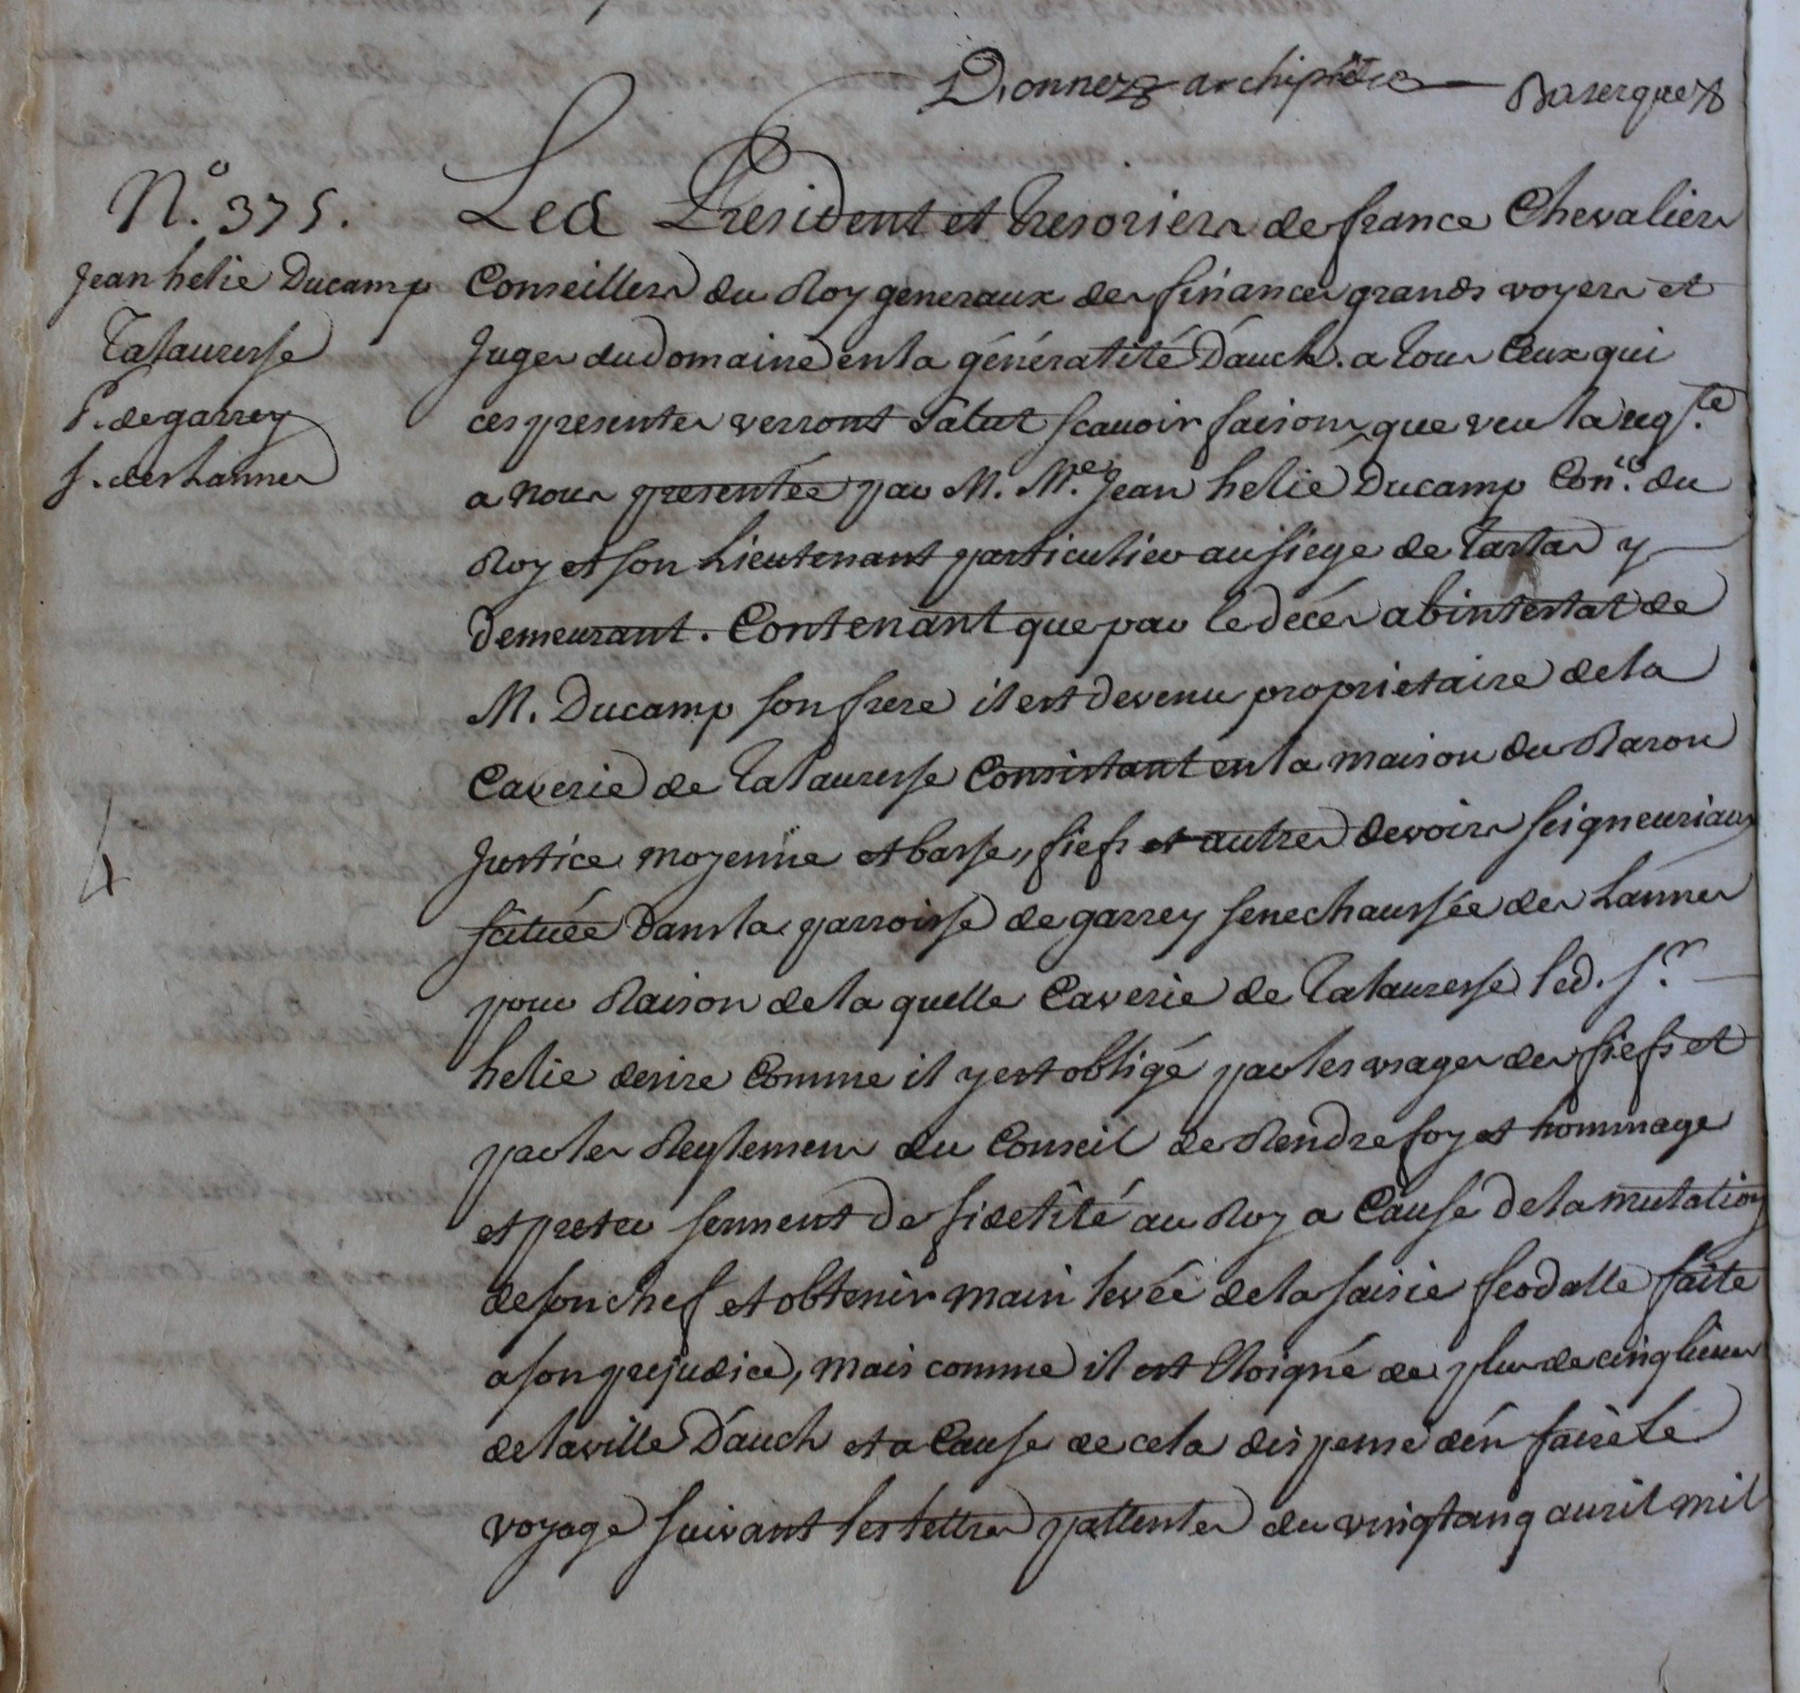 Dionnez archiprêtre Baserque
N.° 375.
Jean helie Ducamp
Talauresse
P. de garrey
S. des Lannes
Les President et Tresoriers de france Chevaliers
Conseillers du Roy generaux des finances grands voyers et
Juges du Domaine en la généralité D'auch. a tous Ceux qui
ces presentes verront Salut scavoir faisons, que veu la reqte.
a nous presentée par M. Me. Jean helie Ducamp Coner. du
Roy et son Lieutenant particulier au siege de Tartas y
demeurant. Contenant que par le decés abintestat de
M. Ducamp son frere il est devenu proprietaire de la
Caverie de Talauresse Consistant en la maison du Baron
Justice moyenne et basse, fiefs et autres devoirs seigneuriaux
scituée Dans la parroisse de garrey senechaussée des Lannes
pour Raison de la quelle Caverie de Talauresse led. Sr.
helie desire Comme il y est obligé par les usages des fiefs et
par les Reglemens du Conseil de Rendre foy et hommage
et preter serment de fidelité au Roy a Cause de la mutation
de son chef et obtenir main levée de la saisie feodalle faite
a son prejudice, mais comme il est Eloigné de plus de cinq lieues
de la ville D'auch et a Cause de cela dispensé d'en faire le
voyage suivant les lettres pattentes du vingt cinq avril mil